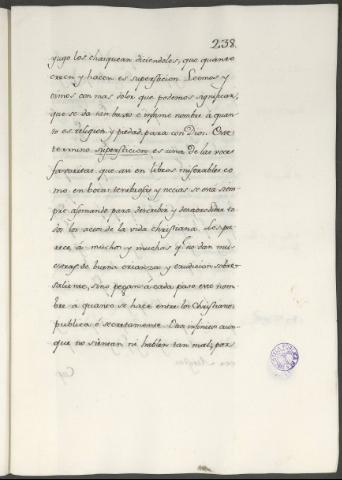 238.
yugo los chasquean diciendoles, que quanto
creen y hacen es superstición. Leemos y
oimos con mas dolor que podemos significar,
que se da tan baxo e infame nombre á quan-
to es religion y piedad para con Dios. Este
termino superstición es una de las voces
favoritas que asi en libros miserables co
mo en bocas y necias se oye siem-
pre asomando para denigrar y desacreditar to
dos los actos de la vida christiana. Les pa-
rece á muchos y muchas qe no dan mu
estras de buena crianza y erudicion sobre-
saliente, sino pegan á cada paso este nom-
bre a quanto se hace entre los Christianos
publica ó secretamente. Otros infinitos aun-
que no sientan ni hablen tan mal, por